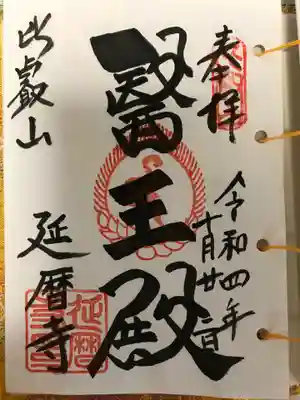 奉拝
令和四年
十月廿日
醫王殿
比叡山
延暦寺